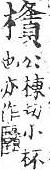 公棟切小杯
也亦作